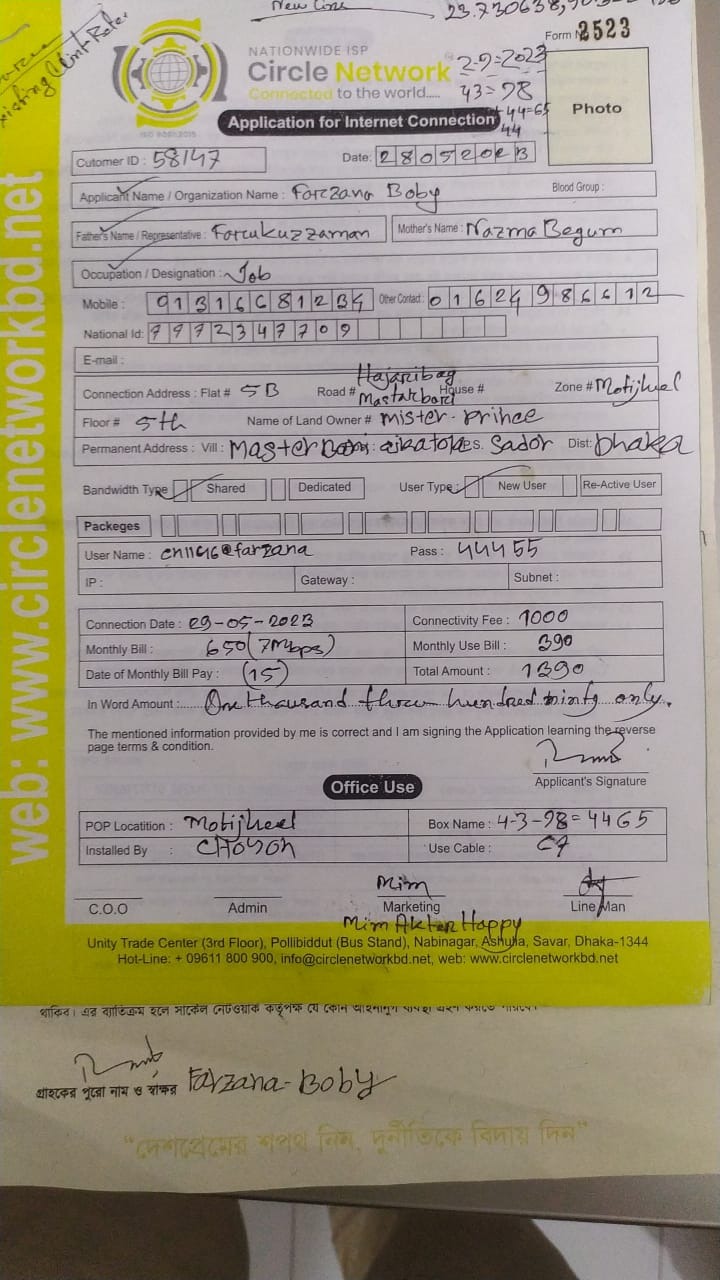 New Line
23.730638,90.
Form No 2523
NATIONWIDE ISP
Circle Network
Connected to the world.....
ISO 9001:2015
2-9-2023
43=98
44=65
44
Application for Internet Connection
Photo
Cutomer ID : 58147
Date: 28052023
Applicant Name / Organization Name : Farzana Boby
Blood Group :
Father's Name / Representative : Farukuzzaman
Mother's Name : Nazma Begum
Occupation / Designation : Job
Mobile : 01316681234
Other Contact: 01624986612
National Id: 7772347709
E-mail :
Connection Address : Flat # 5B Road # Hajaribag Mastarbari House # Zone # Motijheel
Floor # 5th Name of Land Owner # mister. Prince
Permanent Address : Vill : Master Bari P.S. Sador Dist: Dhaka
Bandwidth Type Shared Dedicated User Type: New User Re-Active User
Packeges
User Name : @farzana Pass : 44455
IP : Gateway : Subnet :
Connection Date : 29-05-2023 Connectivity Fee : 1000
Monthly Bill : 650(7Mbps) Monthly Use Bill : 390
Date of Monthly Bill Pay : (15) Total Amount : 1390
In Word Amount :...... One thousand three hundred ninty only.
The mentioned information provided by me is correct and I am signing the Application learning the reverse
page terms & condition.
Applicant's Signature
Office Use
POP Locatition : Motijheel Box Name : 4-3-98=4465
Installed By : CHOYON Use Cable :
Mim
C.O.O Admin Marketing Line Man
Mim Akter Happy
Unity Trade Center (3rd Floor), Pollibiddut (Bus Stand), Nabinagar, Ashulia, Savar, Dhaka-1344
Hot-Line: + 09611 800 900, info@circlenetworkbd.net, web: www.circlenetworkbd.net
web: www.circlenetworkbd.net
গ্রাহকের পুরো নাম ও স্বাক্ষর Farzana-Boby
“দেশপ্রেমের শপথ নিন, দুর্নীতিকে বিদায় দিন”